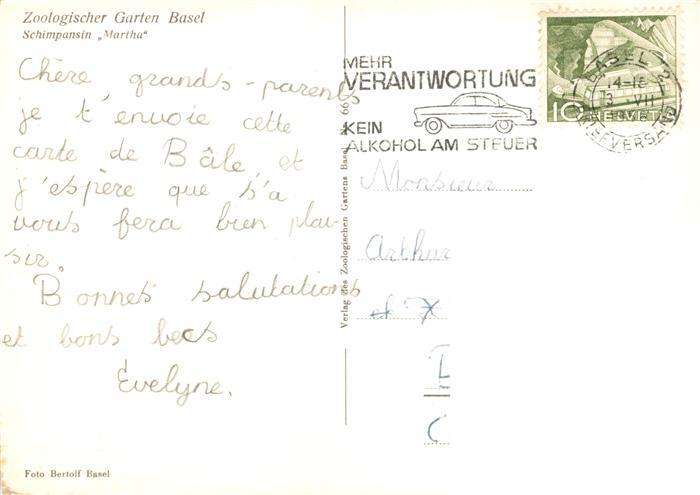 Zoologischer Garten Basel
Schimpansin „Martha“
Chère grands-parents
je t'envoie cette
carte de Bâle et
j'espère que s'a
vous fera bien plai-
sir.
Bonnes salutations
et bons becs
Evelyne.
Foto Bertolf Basel
Verlag des Zoologischen Gartens Basel
MEHR
VERANTWORTUNG
KEIN
ALKOHOL AM STEUER
BASEL 2
14-18
VII
BRIEFVERSAND
10 HELVETIA
Monsieur
Arthur